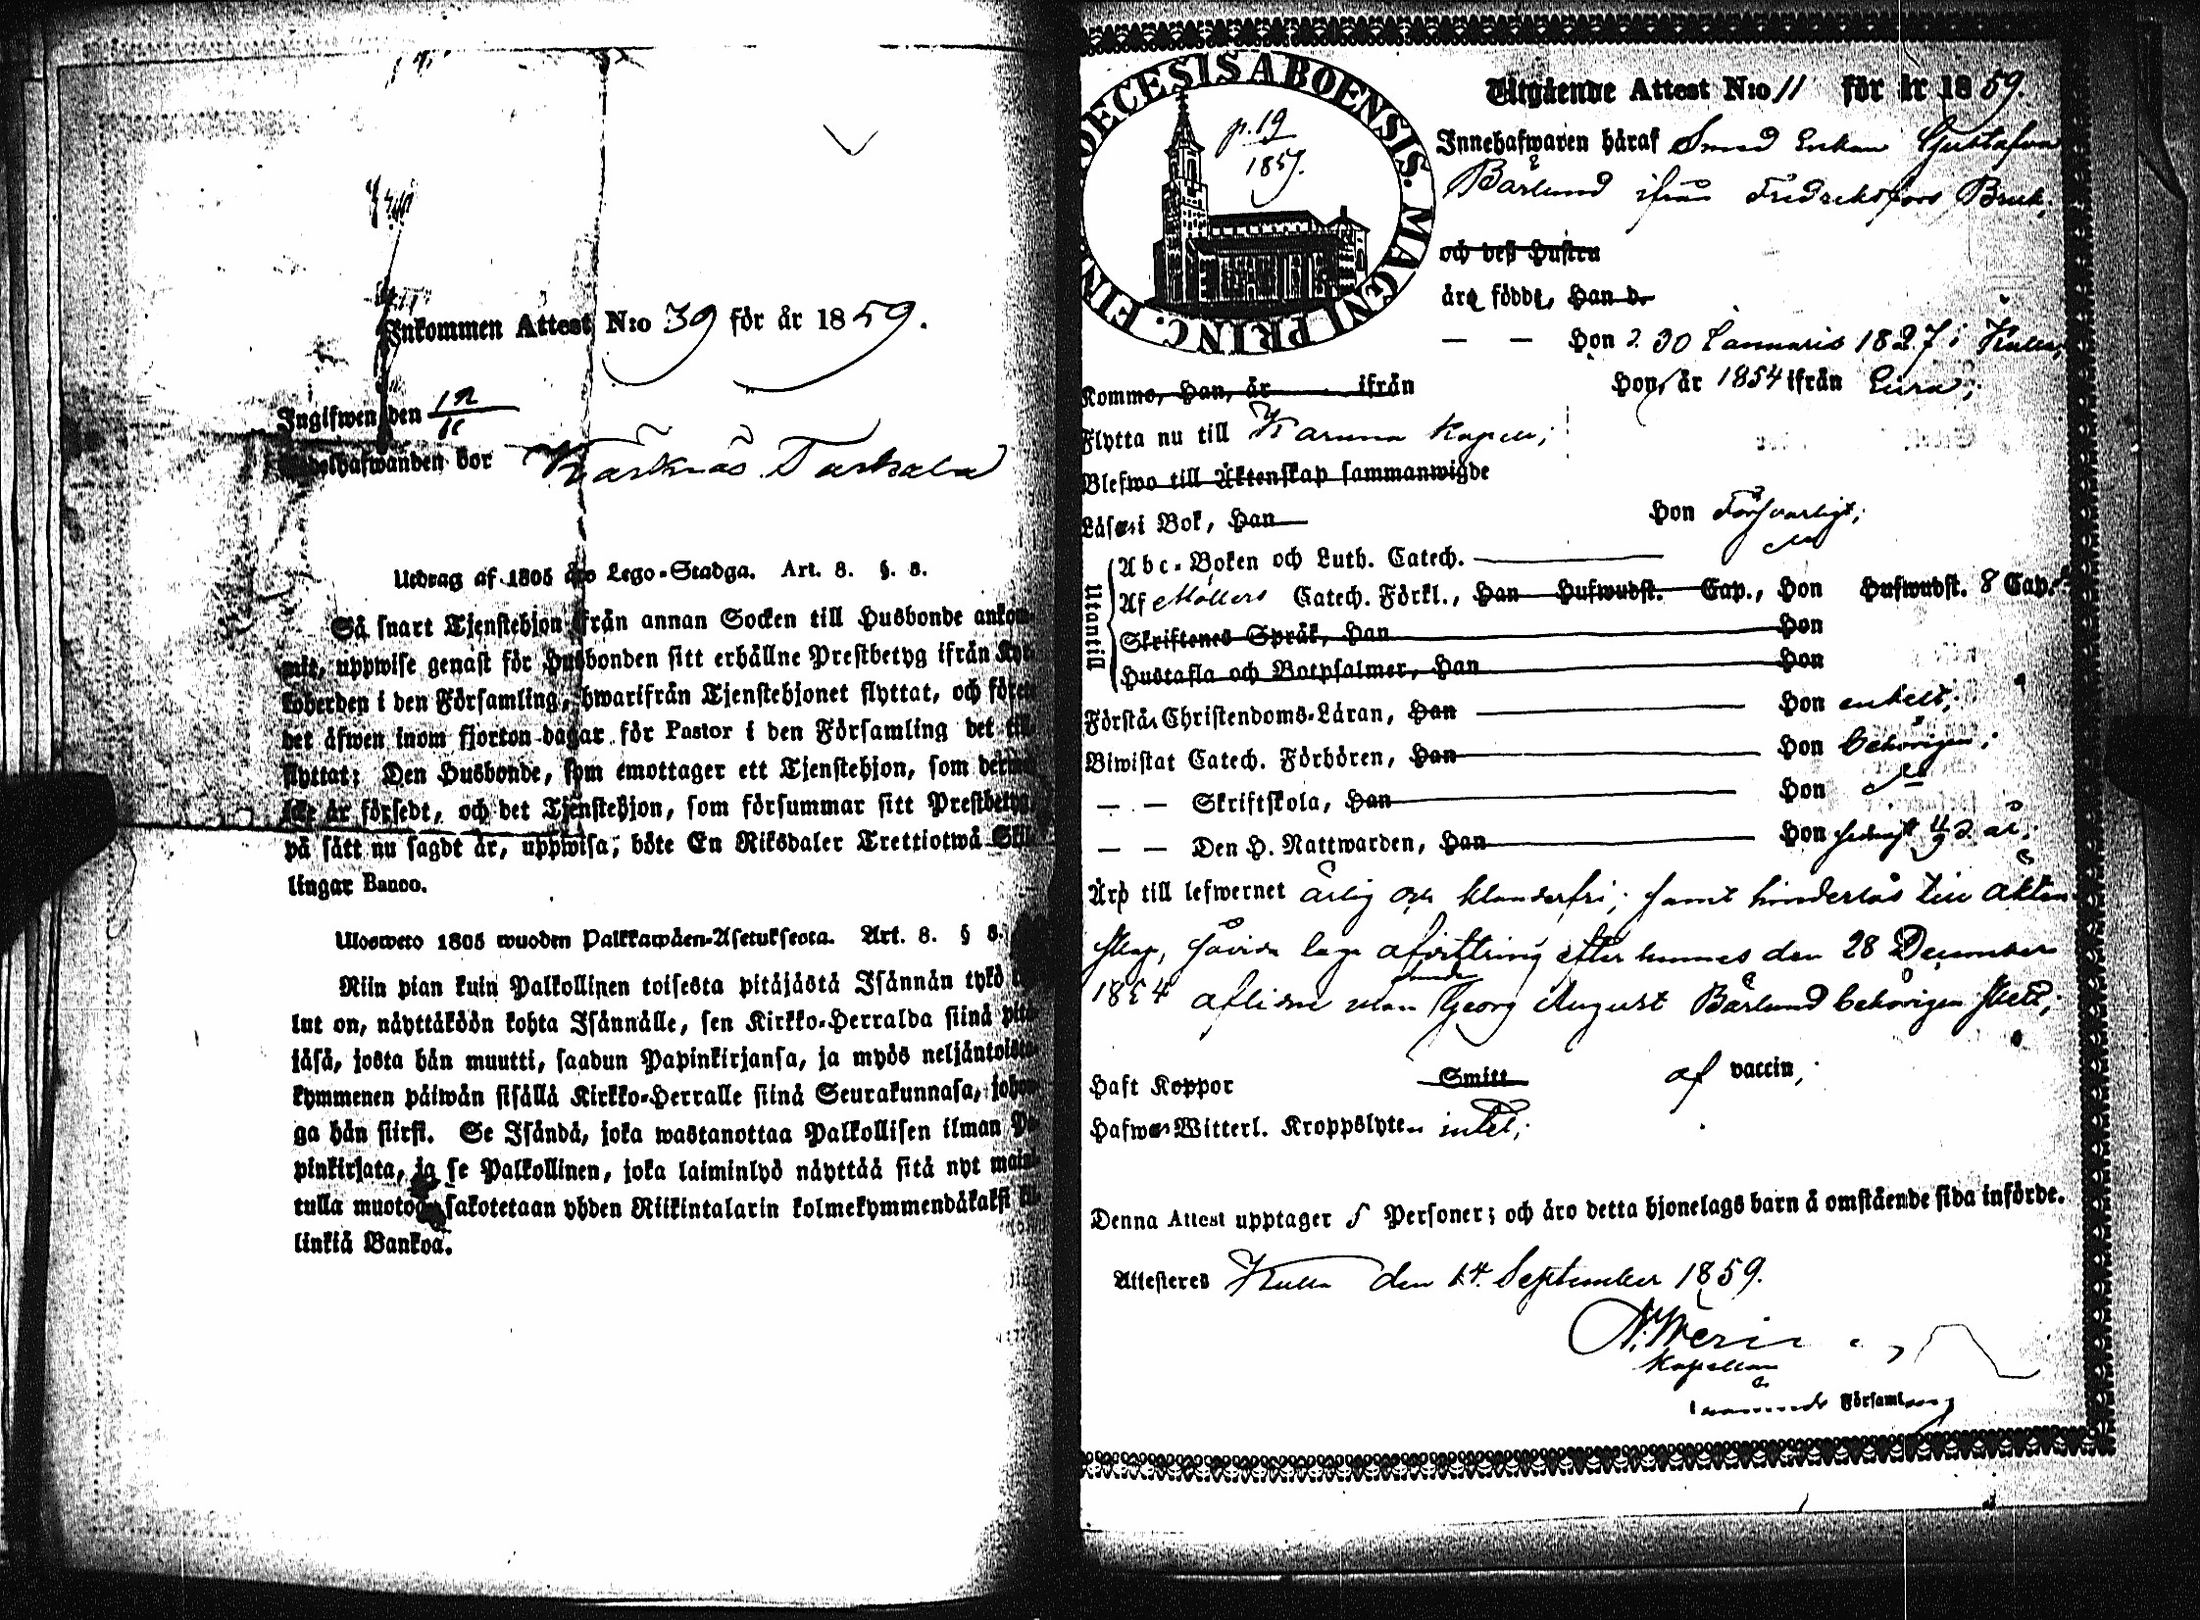 Inkommen Attest N:o 39 för år 1859.
Ingifwen den 12/11
bor Karknäs Tarkala
Utdrag af 1805 års Lego-Stadga. Art. 8. §. 8.
Så snart Tjenstehjon ifrån annan Socken till Husbonde ankom-
mit, uppwise genast för Husbonden sitt erhållne Prestbetyg ifrån Kyr-
koherden i den Församling, hwarifrån Tjenstehjonet flyttat, och förete
det äfwen inom fjorton dagar för Pastor i den Församling det till-
flyttat: Den Husbonde, som emottager ett Tjenstehjon, som dermed
icke är försedt, och det Tjenstehjon, som försummar sitt Prestbetyg
på sätt nu sagdt är, uppwisa, böte En Riksdaler Trettiotwå Skil-
lingar Banco.
Ulosweto 1805 wuoden Palkkawäen-Asetuksesta. Art. 8. § 8.
Niin pian kuin Palkollinen toisesta pitäjästä Isännän tykö
lut on, näyttäköön kohta Isännälle, sen Kirkko-Herralda siinä pitä-
jäsä, josta hän muutti, saadun Papinkirjansa, ja myös neljäntoista-
kymmenen päiwän sisällä Kirkko-Herralle siinä Seurakunnasa, johon-
ga hän siirsi. Se Isändä, joka wastanottaa Palkollisen ilman Pa-
pinkirjata, ja se Palkollinen, joka laiminlyö näyttää sitä nyt maini-
tulla muotoa, sakotetaan yhden Riikintalarin kolmekymmendäkaksi kil-
linkiä Bankoa.
DIOECESIS ABOENSIS. MAGNI PRINC. FIN
p. 19
1859.
Utgående Attest N:o 11 för år 1859.
Innehafwaren häraf Smed Enkan Gustafva
Bärlund ifrån Fredriksfors Bruk,
och dess Hustru
äro födde, Han d.
— — Hon d. 30 Januarii 1827 i Kulla,
Komme, Han, år ifrån Hon, år 1854 ifrån Eura;
Flytta nu till Karuna Kapell;
Blefwo till Äktenskap sammanwigde
Läser i Bok, Han Hon Försvarligt;
Utantill
Abc-Boken och Luth. Catech.
Af Möllers Catech. Förkl., Han Hufwudst. Cap., Hon Hufwudst. 8 Cap.
Skriftenes Språk, Han Hon
Hustafla och Botpsalmer, Han Hon
Förstår Christendoms-Läran, Han Hon enkelt;
Biwistat Catech. Förhören, Han Hon behörigen;
— — Skriftskola, Han Hon
— — Den H. Nattwarden, Han Hon senast 4/9 d. år;
Äro till lefwernet ärlig och klanderfri; samt hinderlös till äkten-
skap, såvida laga afvittring efter hennes den 28 December
1854 aflidne man Smeden Georg August Bärlund behörigen skett;
Haft Koppor Smitt af vaccin;
Hafwer Witterl. Kroppslyten intet;
Denna Attest upptager 5 Personer; och äro detta hjonelags barn å omstående sida införde.
Attesteres Kulla den 14. September 1859.
Kapellan
Församling